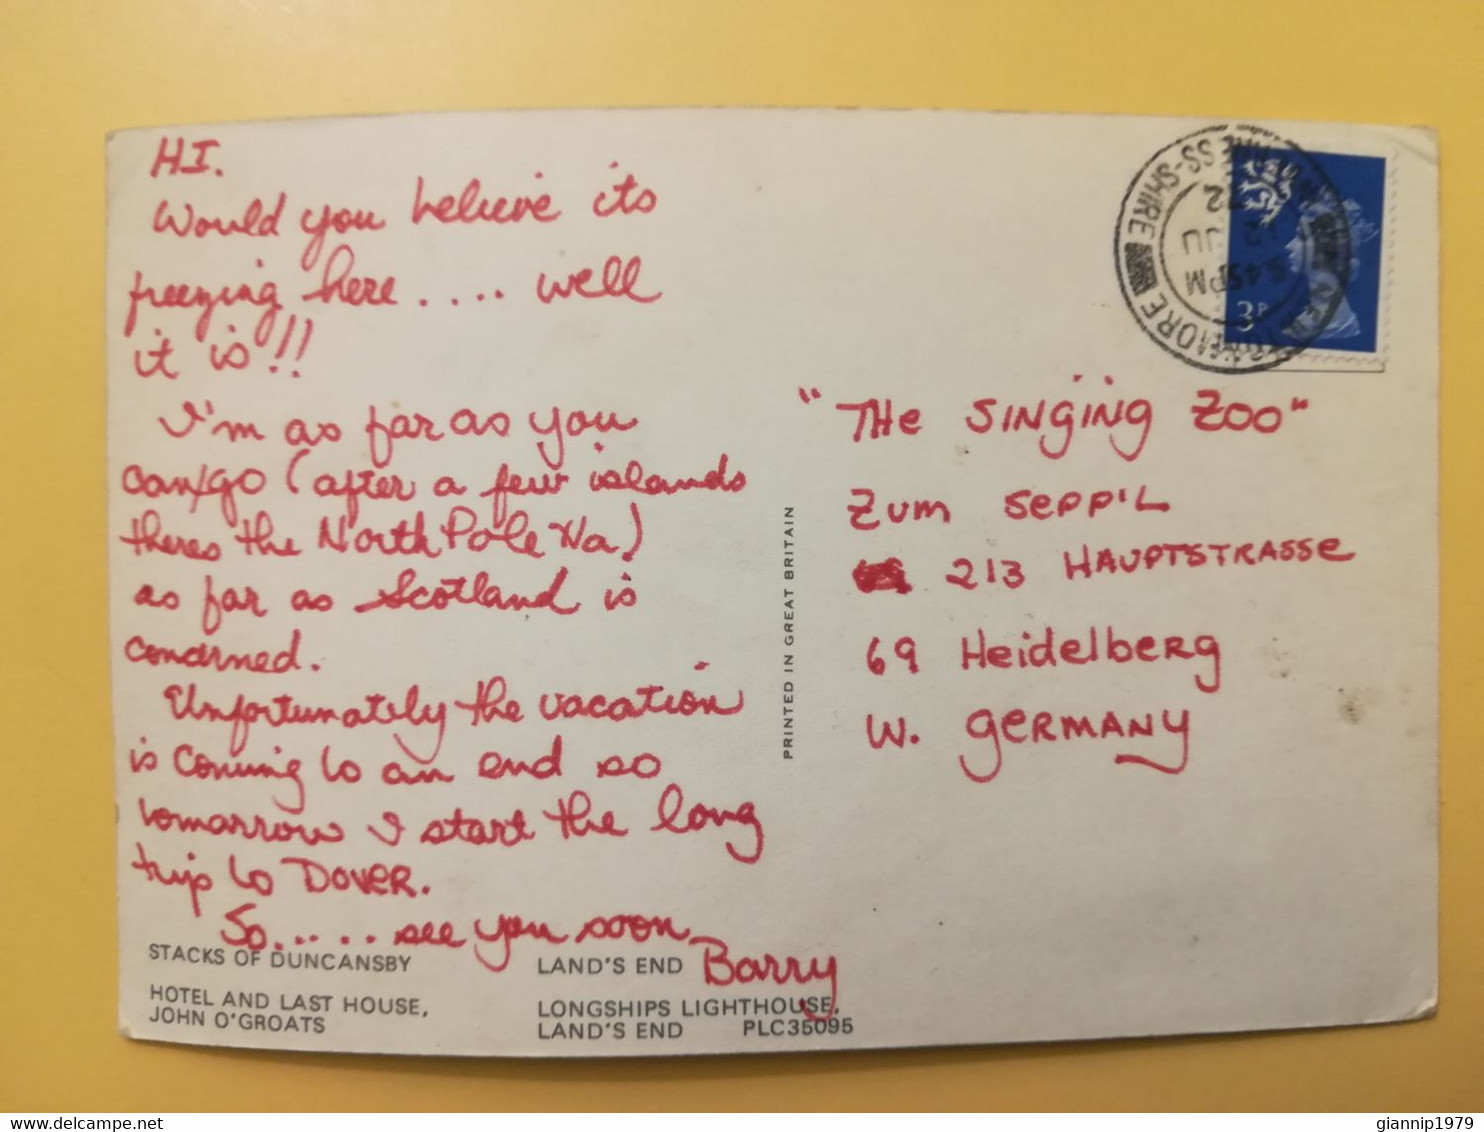 HI.
Would you believe its
freezing here.... well
it is!!
I'm as far as you
can go (after a few islands
theres the North Pole Ha!)
as far as Scotland is
concerned.
Unfortunately the vacation
is coming to an end so
tomorrow I start the long
trip to DOVER.
So..... see you soon
Barry
STACKS OF DUNCANSBY
HOTEL AND LAST HOUSE,
JOHN O'GROATS
LAND'S END
LONGSHIPS LIGHTHOUSE,
LAND'S END PLC35095
PRINTED IN GREAT BRITAIN
"THe SiNgiNg ZOO"
Zum SePP'L
213 HAUPTSTRASSe
69 HeidelbeRg
W. geRMANY
3P
5.45PM
12 JU
72
NESS-SHIRE
giannip1979